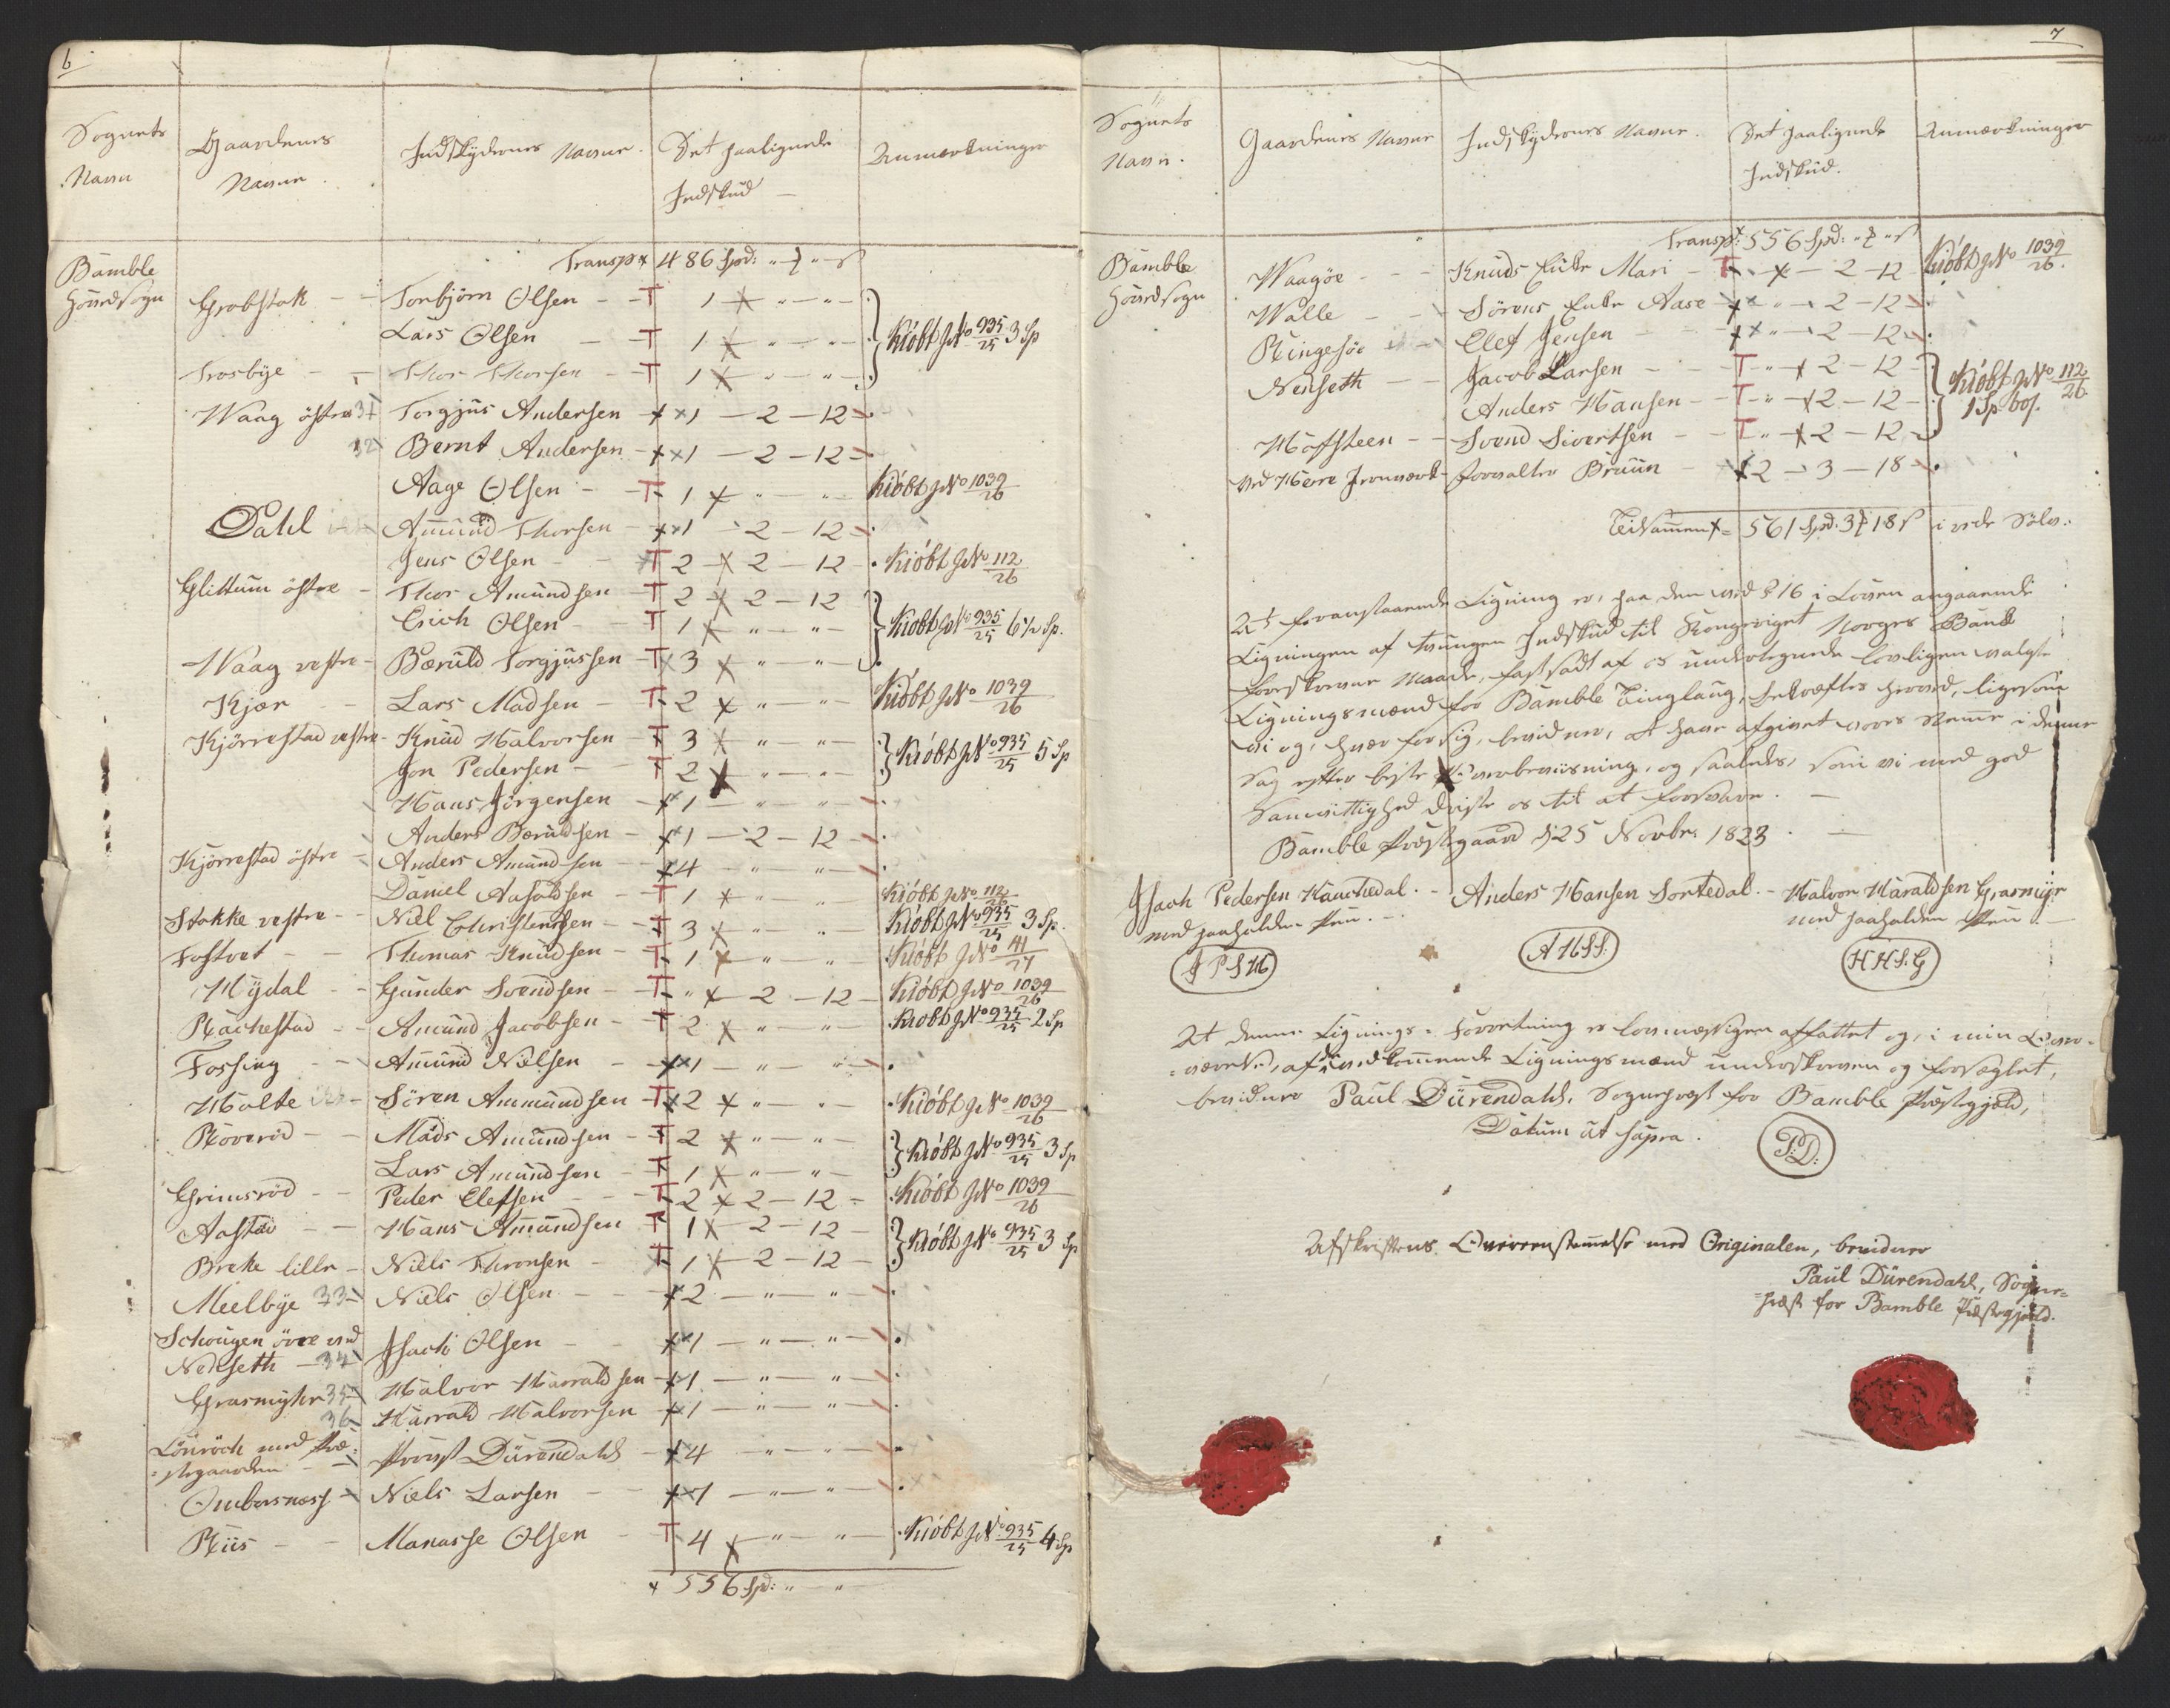 6
Sognets Navn
Gaardenes Navne.
Indskydernes Navne.
Det paalignede Indskud
Anmærkninger
Bamble Hovedsogn
Transp 486 Spd: " "
Grobstok Torbjörn Olsen T 1 " "
Lars Olsen T 1 " " Kiöbt JNo 935/25 3 Sp
Trosbye Thor Thorsen T 1 " "
Waag östre 31 Torgjus Andersen 1 - 2 - 12
32 Bernt Andersen 1 - 2 - 12
Aage Olsen T 1 " " Kiöbt JNo 1039/26
Dahl Amund Thorsen 1 - 2 - 12
Jens Olsen T 2 - 2 - 12 Kiöbt JNo 112/26
Glittum östre Thor Amundsen T 2 - 2 - 12
Erich Olsen T 1 " " Kiöbt JNo 935/25 6½ Sp.
Waag vestre Bæruld Torgjussen T 3 " "
Kjær Lars Madsen T 2 " " Kiöbt JNo 1039/26
Kjörrestad vestre Knud Halvorsen T 3 " "
Jon Pedersen T 2 " " Kiöbt JNo 935/25 5 Sp
Hans Jörgensen 1 " "
Anders Bæruldsen 1 - 2 - 12
Kjörrestad östre Anders Amundsen 4 " "
Daniel Aasoldsen T 1 " " Kiöbt JNo 112/26
Stokke vestre Niel Christensen T 3 " " Kiöbt JNo 935/25 3 Sp.
Fostvet Thomas Knudsen T 1 " " Kiöbt JNo 141/27
Mydal Gunder Svendsen T " 2 - 12 Kiöbt JNo 1039/26
Rachestad Amund Jacobsen T 2 " " Kiöbt JNo 935/25 2 Sp
Fossing Amund Nilsen 1 " "
Holte Sören Ammundsen T 2 " " Kiöbt JNo 1039/26
Roveröd Mads Amundsen T 2 " "
Lars Amundsen T 1 " " Kiöbt JNo 935/25 3 Sp
Grimsröd Peder Elefsen T 2 - 2 - 12 Kiöbt JNo 1039/26
Aastad Hans Amundsen T 1 - 2 - 12
Brekke lille Niels Thronsen T 1 - 2 - 12 Kiöbt JNo 935/25 3 Sp
Meelbye 33 Niels Olsen 2 " "
Schougen övre ved
Nenseth 34 Isach Olsen 1 " "
Grasmyhr 35 Halvor Harraldsen 1 " "
36 Harrald Halvorsen 1 " "
Lönröch med Præ=
stegaarden Provst Dürendahl 4 " "
Ombersness Niels Larsen 1 " "
Riis Manasse Olsen T 4 " " Kiöbt JNo 935/25 4 Sp
556 Spd: " "
7
Sognets Navn.
Gaardenes Navne
Indskydernes Navne.
Det paalignede Indskud.
Anmærkninger
Bamble Hovedsogn
Transp: 556 Spd: " "
Waagöe Knuds Enke Mari T " 2 - 12 Kiöbt JNo 1039/26.
Walle Sörens Enke Aase " 2 - 12
Ringesöe Elef Jensen " 2 - 12
Nenseth Jacob Larsen T " 2 - 12
Anders Hansen T " 2 - 12 Kiöbt JNo 112/26. 1 Sp 60 s.
Hafsteen Svend Sivertsen T " 2 - 12
Ved Herre Jernværk Forvalter Bruun 2 - 3 - 18
Tilsammen 561 Spd. 3 18 s i rede Sölv.
At foranstaaende Ligning er, paa den ved § 16 i Loven angaaende
Ligningen af tvungen Indskud til Kongeriget Norges Bank
foreskrevne Maade, fastsadt af os undertegnede lovligen valgte
Ligningsmænd for Bamble Tinglaug, bekræftes herved, ligesom
vi og, hver for sig, bevidner, at have afgivet vores Stemme i denne
Sag efter beste Overbeviisning, og saaledes, som vi med god
Samvittighed driste os til at forsvare.
Bamble Præstegaard d 25 Novbr: 1823.
Isach Pedersen Hauchedal. - Anders Hansen Sortedal. - Halvor Haraldsen Grasmyr
med paaholden Pen. med paaholden Pen
J P S H A H S S. H H S. G
At denne Lignings-Forretning er lovmæssigen affattet og, i min Over-
=værelse, af vedkommende Ligningsmænd underskreven og forseglet,
bevidner Paul Dürendahl, Sognepræst for Bamble Præstegjeld,
Datum ut supra. P:D:
Afskriftens Overeenstemmelse med Originalen, bevidner
Paul Dürendahl, Sogne=
=præst for Bamble Præstegjeld.